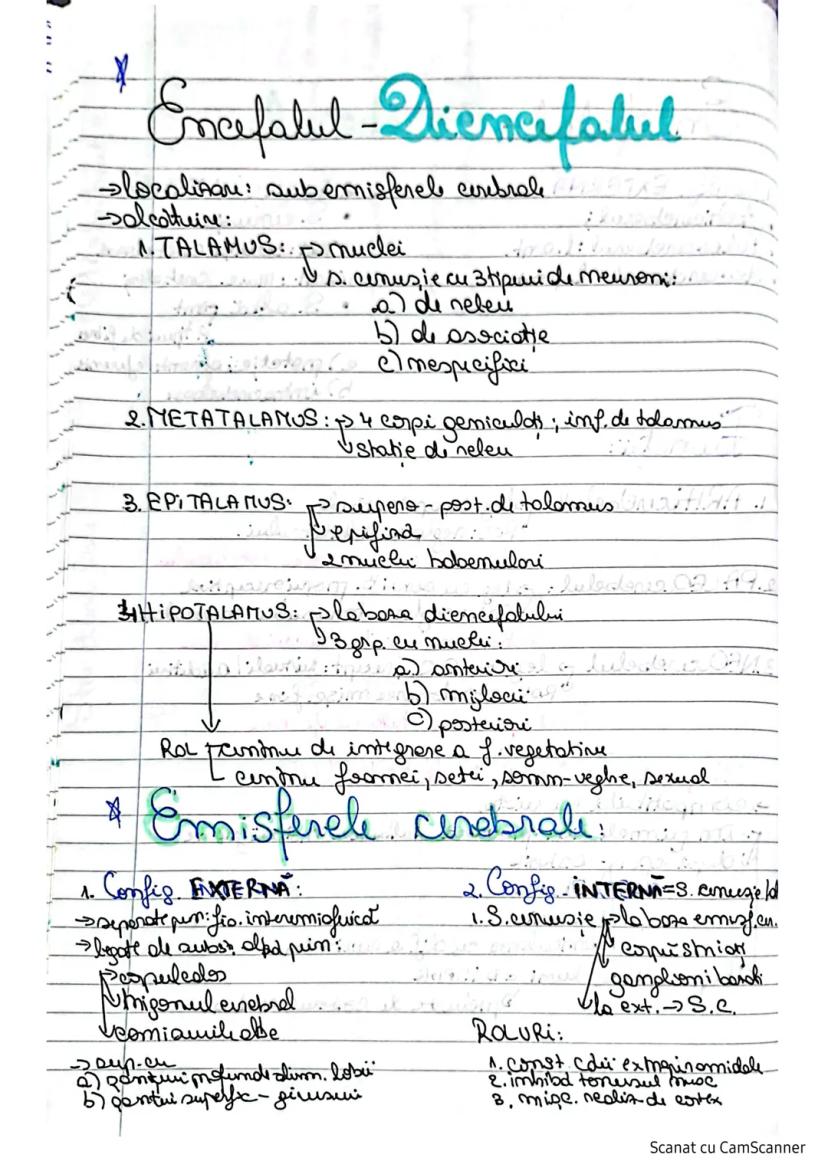 Encefalul-Diencefalul
→localizare: sub emisferele cerebrale
→alcătuire:
1. TALAMUS: → nuclei
→ s. cenușie cu 3 tipuri de neuroni:
a) de releu
b) de asociație
c) nespecifici
2. METATALAMUS: → 4 corpi geniculați; inf. de talamus
→ stație de releu
3. EPITALAMUS: → supero-post. de talamus
→ epifiză
→ 2 nuclei habenulari
4. HIPOTALAMUS: → la baza diencefalului
→ 3 grp. cu nuclei:
a) anteriori
b) mijlocii
c) posteriori
ROL centru de integrare a f. vegetative
centru foamei, setei, somn-veghe, sexual
Emisferele cerebrale:
1. Config. EXTERNĂ:
→ separate prin: fis. interemisferică
→ legate de subst. albă prin:
→ corpul calos
→ trigonul cerebral
→ comisurile albe
→ sup. cu
a) șanțuri profunde delim. lobii
b) șanțuri superfic - girusuri
2. Config. INTERNĂ = S. cenușie/al
1. S. cenușie → la baza emisf. cer.
→ corpi striați
ganglioni bazali
→ la ext. → S.C.
ROLURI:
1. const. căii extrapiramidale
2. inhibă tonusul musc
3. mișc. realiz. de cortex
Scanat cu CamScanner